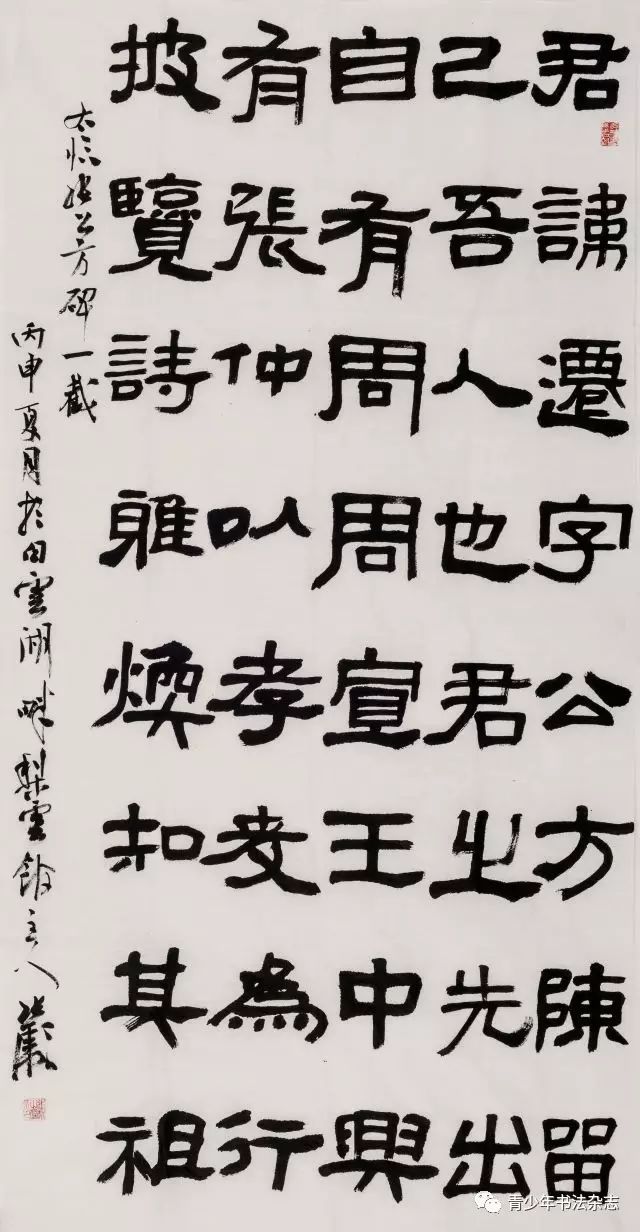 君諱遷字公方陳留
己吾人也君之先出
自有周周宣王中興
有張仲以孝友為行
披覽詩雅煥知其祖
临张公方碑一截
丙申夏月於白雲湖畔梨雲館主人
青少年书法杂志